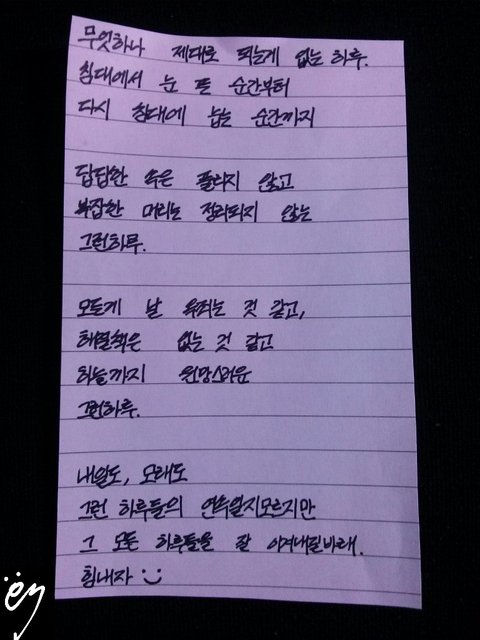 무엇하나 제대로 되는게 없는 하루.
침대에서 눈 뜬 순간부터
다시 침대에 눕는 순간까지
답답한 속은 풀리지 않고
복잡한 머리는 정리되지 않는
그런하루.
모든게 날 욱죄는 것 같고,
해결책은 없는 것 같고
하늘까지 원망스러운
그런하루.
내일도, 모레도
그런 하루들의 연속일지모르지만
그 모든 하루들을 잘 이겨내길바래.
힘내자 :)
ëy